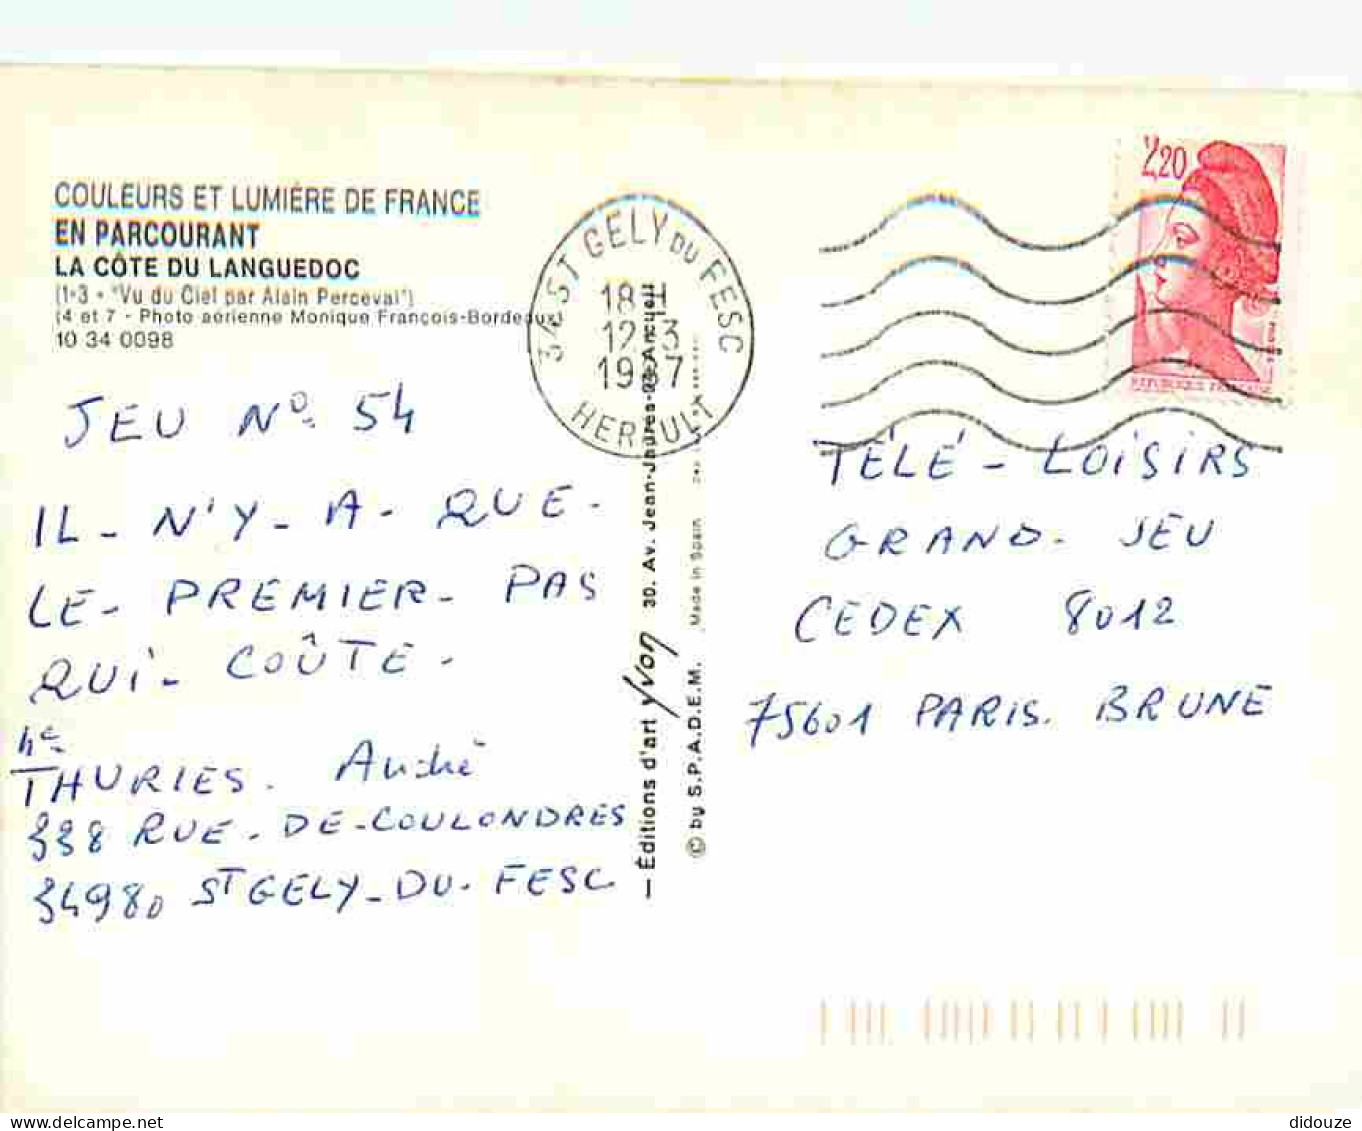 COULEURS ET LUMIÈRE DE FRANCE
EN PARCOURANT
LA CÔTE DU LANGUEDOC
(1-3 - "Vu du Ciel par Alain Perceval")
(4 et 7 - Photo aérienne Monique François-Bordeaux)
10 34 0098
JEU No. 54
IL - N'Y - A - QUE -
LE - PREMIER - PAS
QUI - COÛTE -
THURIES. André
338 RUE - DE - COULONDRES
34980 ST GELY - DU - FESC
34 ST GELY DU FESC
18 H
12-3
1987
HERAULT
— Éditions d'art Yvon 30. Av. Jean-Jaurès
© by S.P.A.D.E.M. Made in Spain
2,20
REPUBLIQUE
TÉLÉ - LOISIRS
GRAND - JEU
CEDEX 8012
75601 PARIS. BRUNE
didouze